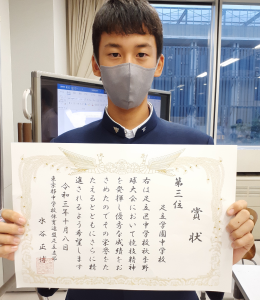 賞状
第三位
足立学園中学校
右は足立区中学校秋季野
球大会において規律精神
を発揮し優秀な成績をお
さめたのでその栄誉をた
たえるとともにさらに精
進されるよう希望します
令和三年十月八日
東京都中学校体育連盟足立支部
水谷正博